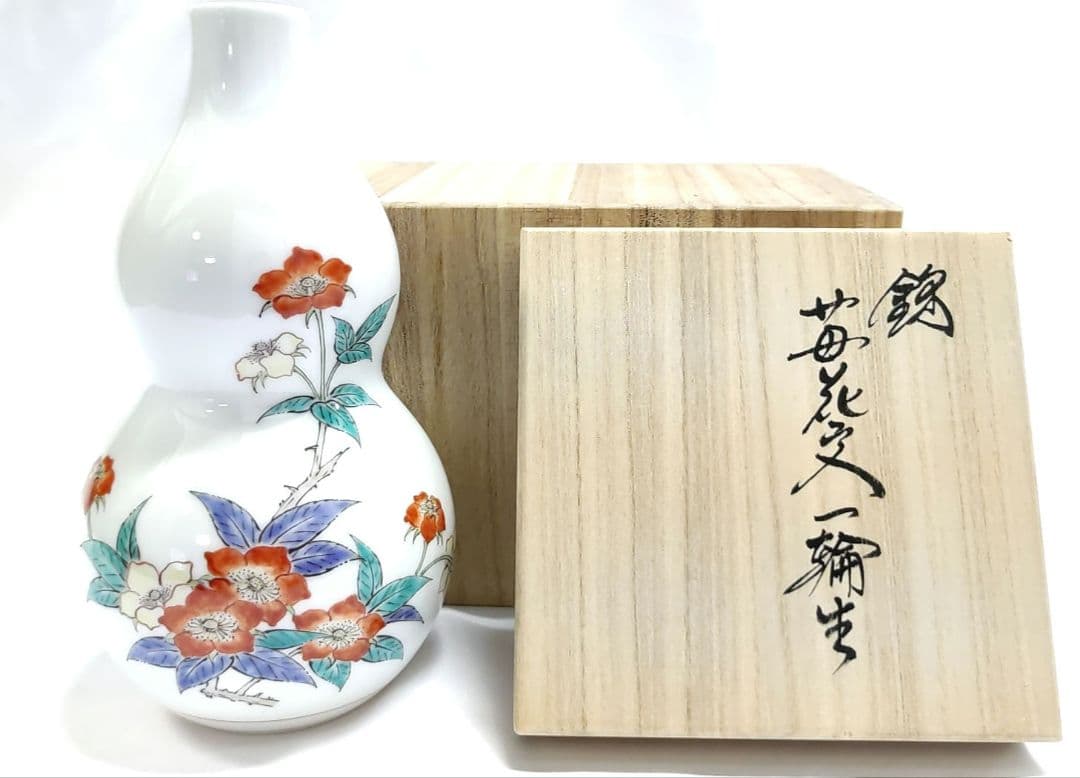 錦
苺花文一輪生